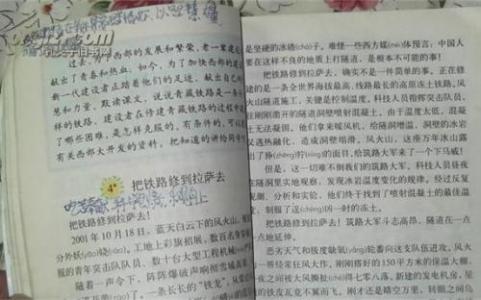 过去,为了西部的发展和繁荣,老一辈建
献出了青春和热血。如今,为了加快西部的建设
新一代建设者正踏着他们的足迹,献出自己的
慧和力量。默读课文,说说青藏铁路是一条
样的铁路,建设者在修建青藏铁路的过程中
了哪些困难,是怎样克服的,有条件的,可以
有关西部大开发的资料,把知道的讲给同学
4* 把铁路修到拉萨去
把铁路修到拉萨去!
2001年10月18日,蓝天白云下的风火山,
分外妖(yāo)娆(ráo)。工地上彩旗招展,数百名
服的青年突击队队员、数十台大型工程机械
随着一声令下,阵阵爆破声响彻雪域高
了,一条长长的“铁龙”,从
是坚硬的冰碴(chá)子,难怪一些西方媒(méi)体预言:中国人
要在这样不良的地质上打隧道,是根本不可能的事!
把铁路修到拉萨去,确实不是一件简单的事。正在修
建的是一条全世界海拔最高、线路最长的高原冻土铁路,风
火山隧道施工,关键是控制温度。科技人员指挥突击队员,
往刚刚凿开的隧道洞壁喷射混凝土,由于温度太低,混凝
土无法凝固,他们拿来暖风机,给隧道增温,洞壁的冰岩
又遇热融化,造成洞壁塌滑。风火山,这座万年冰山露
出了狰(zhēng)狞(níng)的面目,给筑路大军来了一个下马威!
但是,这一切难不倒我们的筑路大军。科技人员昼夜在
隧洞里实地观察,发现冰岩温度变化的规律。经过反复
观测、分析和实验,他们终于找到了喷射混凝土的最佳温
度,制服了逞(chěng)凶一时的冻土。
把铁路修到拉萨去!筑路大军斗志高昂,隧道在一点
一点地延伸。
恶劣天气和极度缺氧(yǎng)轮番向这支队伍进攻。风火
山一带经常狂风大作,刚刚搭好的150平方米的保温大棚,
夜之间被大风撕扯得七零八落,新建的发电机房,屋